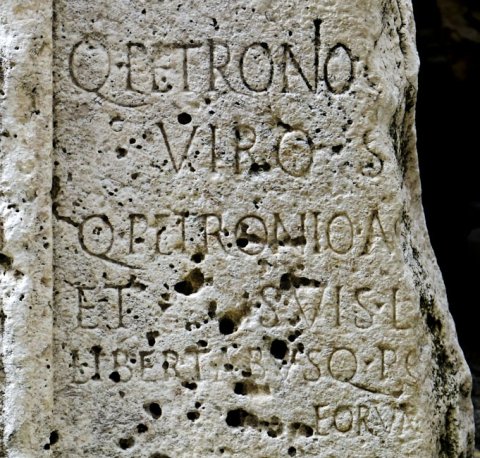 Q·PETRONIO
VIRO S
Q·PETRONIO·A
ET SVIS·L
LIBERTABVSQ·PO
EORVM